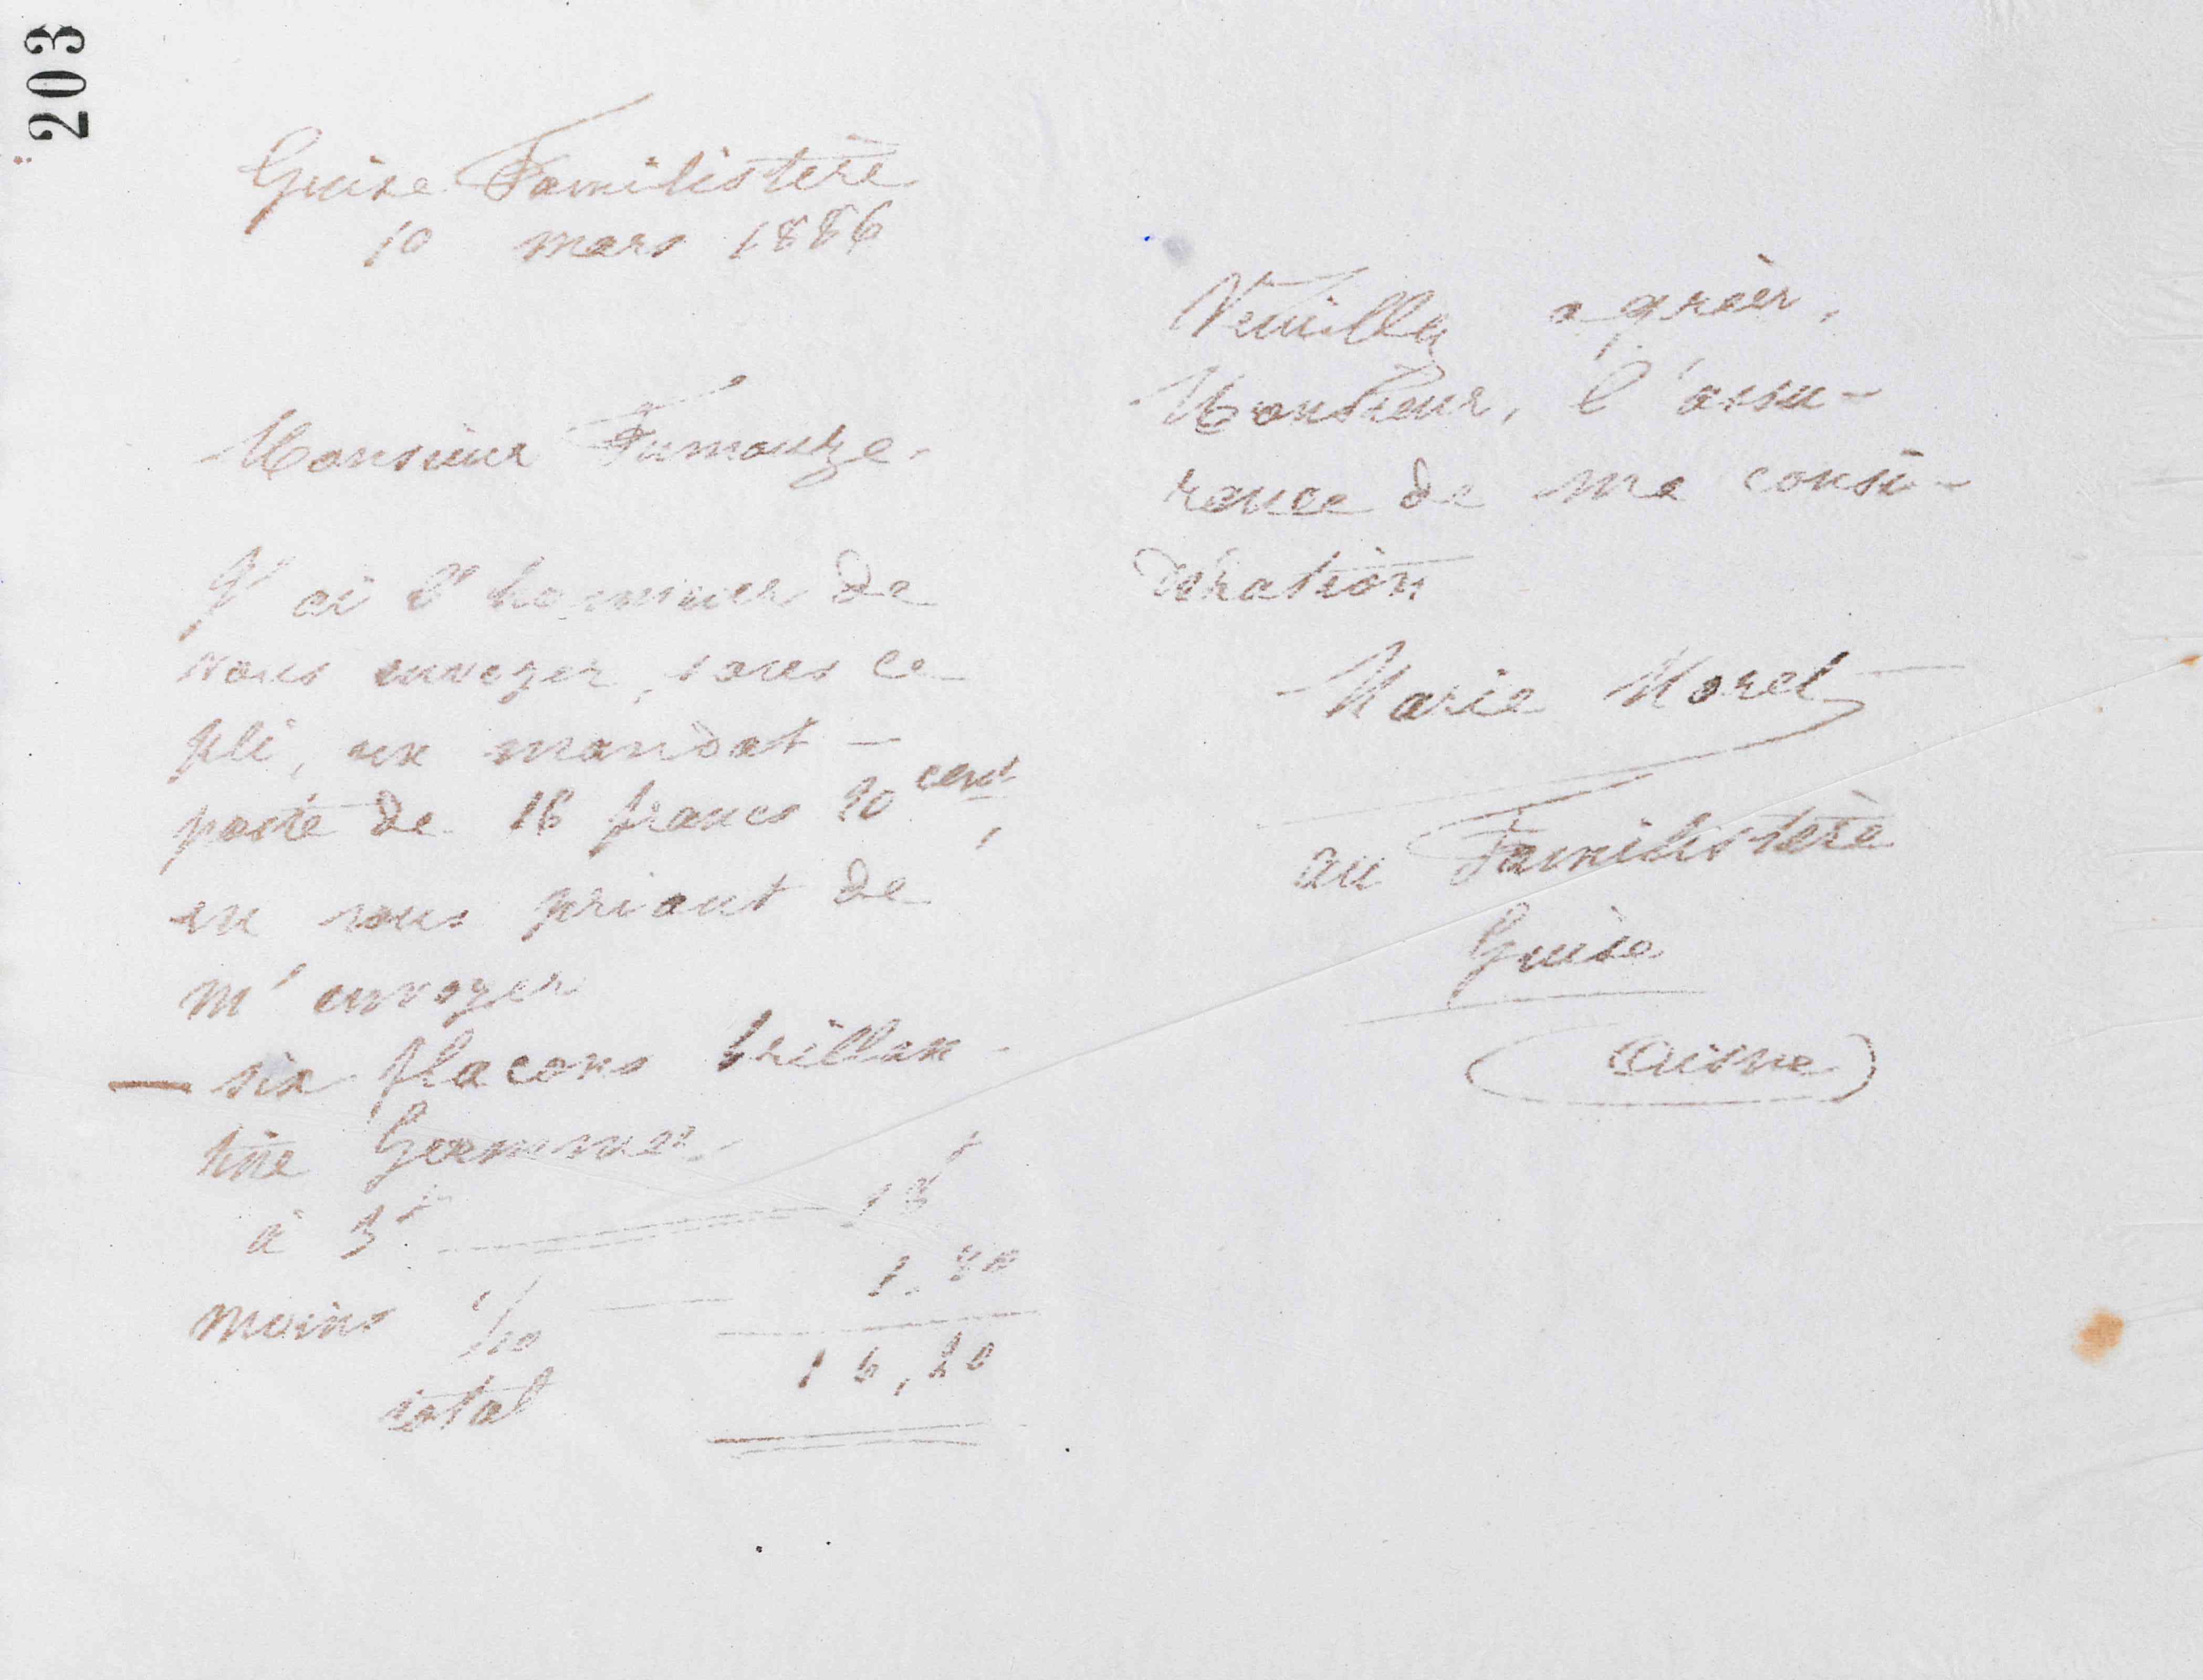 203
Guise Familistère
10 mars 1886
Monsieur Fumouze,
J'ai l'honneur de
vous envoyer, sous ce
pli, un mandat-
poste de 16 francs 20 cent,
en vous priant de
m'envoyer
— six flacons brillan-
tine
à 3f 18f
moins 1/10 1.80
total 16,20
Veuillez agréer,
Monsieur, l'assu-
rance de ma consi-
dération
Marie Moret
au Familistère
Guise
(Aisne)